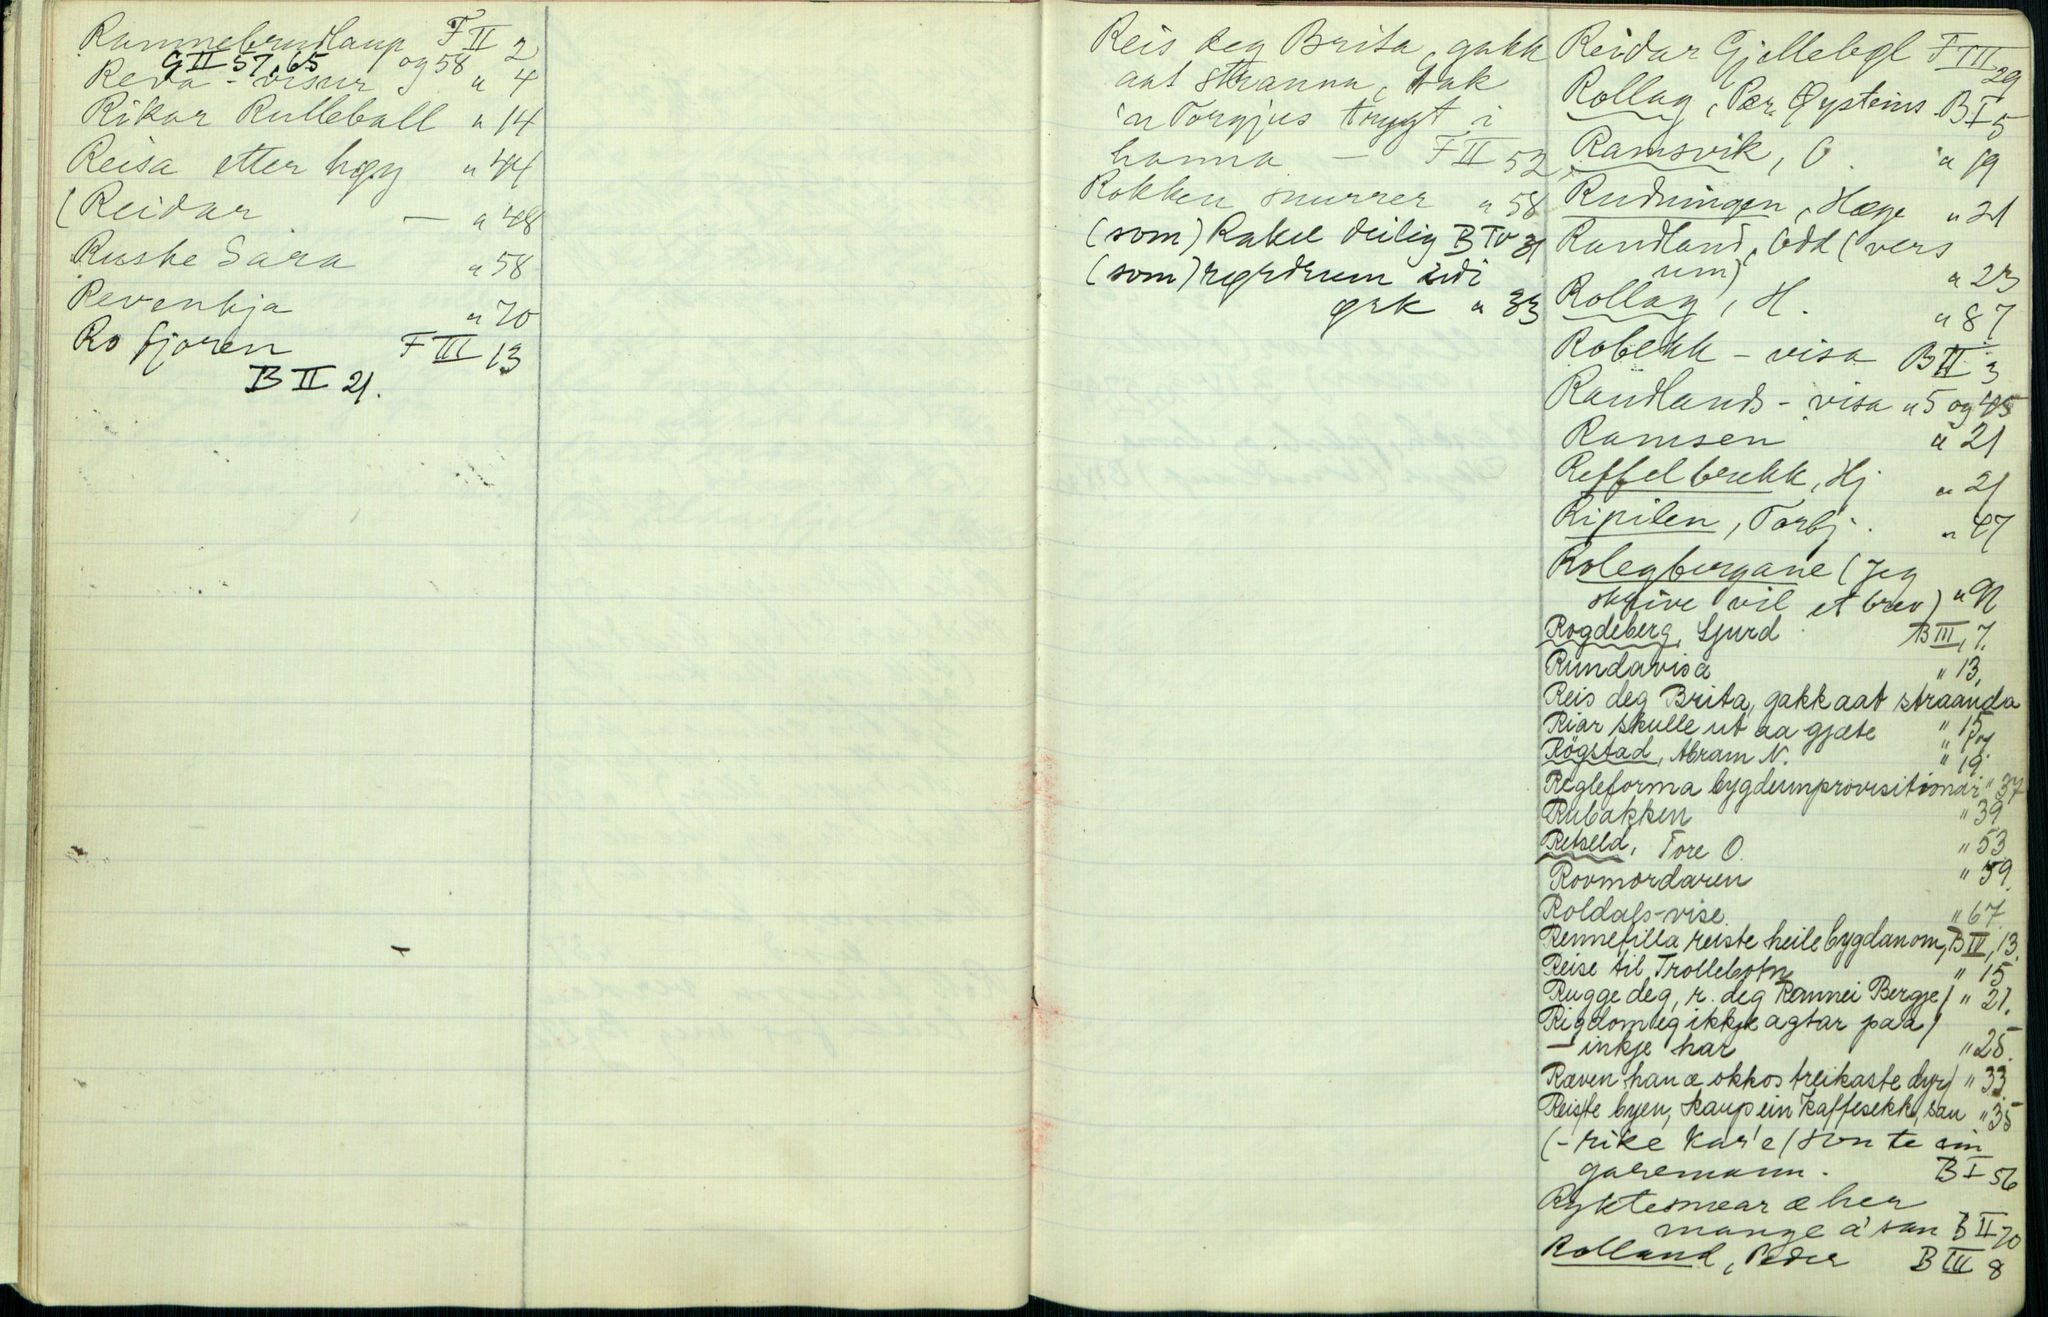 Rammebrudlaup F II 2
G II 57, 65 og 58
Reva - visur " 4
Rikar Rulleball " 14
Reisa etter høy " 44
(Reidar — " 48
Ruske Sara " 58
Revenkja " 70
Ro fjoren F III 13
B II 21.
Reis deg Brita, gakk
aat stranna, tak
'n Torgjus trygt i
hanna — F II 52
Rokken snurrer " 58
(som) Rakel deilig B IV 31
(som) rørdrum idi
ørk " 33
Reidar Gjellebøl F III 29
Rollag, Pær Øysteins B I 5
Ramsvik, O. " 19
Rudningen, Hæge " 21
Randland, Odd (vers
um) " 23
Rollag, H. " 87
Robekk - visa B II 3
Randlands - visa " 5 og 45
Ramsen " 21
Reffelbrekk, Hj " 21
Ripilen, Torbj. " 47
Rolegbergane (Jeg
skrive vil et brev) " 92
Rogdeberg, Sjurd B III, 7.
Rundavisa " 13.
Reis deg Brita, gakk aat straanda
Riar skulle ut aa gjæte " 15
Rögstad, Abram N. " 19.
Regleforma bygdeimprovisitionar " 37
Rubakken " 39
Retseld, Tore O. " 53
Rovmordaren " 59.
Roldals-vise " 67.
Rennefilla reiste heile bygdanom, B IV, 13.
Reise til Trollebotn " 15
Rugge deg, r. deg Rannei Bergje / " 21.
Rigdom eg ikkje agtar paa /
— inkje har " 25.
Ræven han æ okkos treikaste dyr / " 33.
Reis te byen, kaup ein kaffesekk, sau " 35
(- rike kar'e / son te ein
garemann. B I 56
Ryktesmear æ her
mange a' san B II 70
Rolland, Peder B III 8